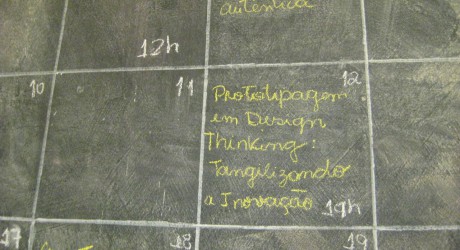 autêntica
12h
10
11
12
Prototipagem
em Design
Thinking:
Tangilizando
a Inovação 19h
17
18
19